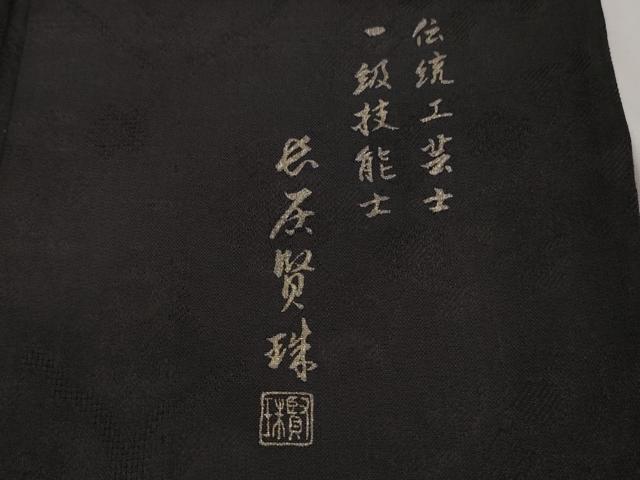 伝統工芸士
一級技能士
长居賢珠
賢珠